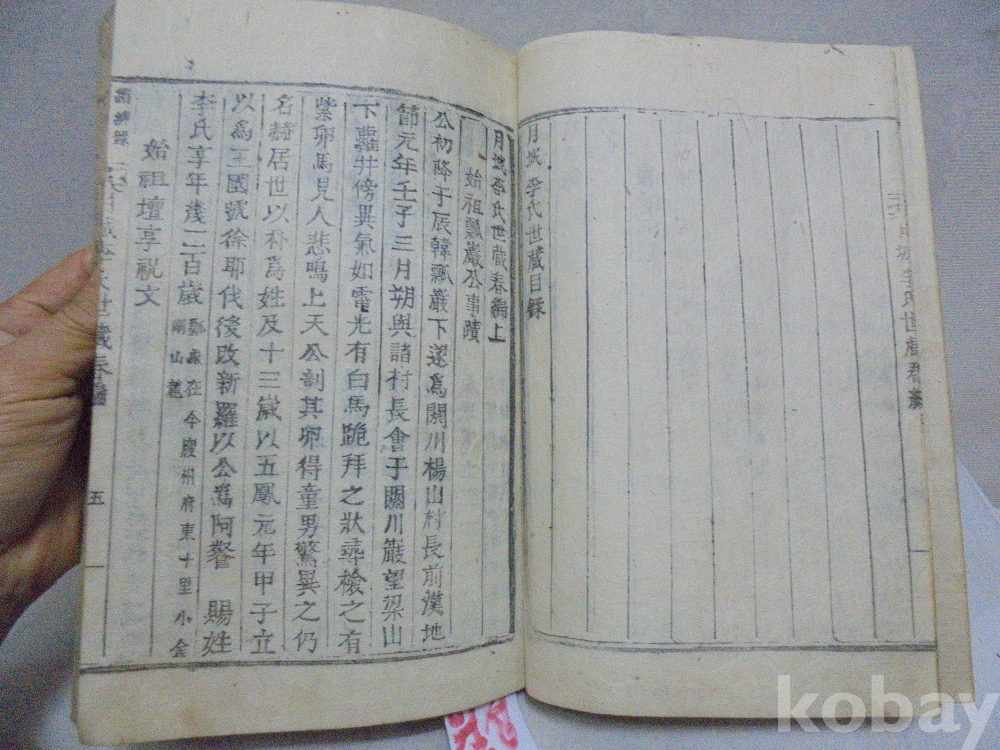 月城李氏世蕆目録
月城李氏世蕆春編上
始祖瓢巖公事蹟
公初降于辰韓瓢巖下遂爲閼川楊山村長前漢地
節元年壬子三月朔與諸村長會于閼川巖望梁山
下蘿井傍異氣如電光有白馬跪拜之狀尋檢之有
紫卵馬見人悲鳴上天公剖其卵得童男驚異之仍
名赫居世以朴爲姓及十三歲以五鳳元年甲子立
以爲王國號徐耶伐後改新羅以公爲阿飡 賜姓
李氏享年歲二百歲
瓢巖在今慶州府東十里小金
剛山麓
始祖壇享祝文
五
kobay